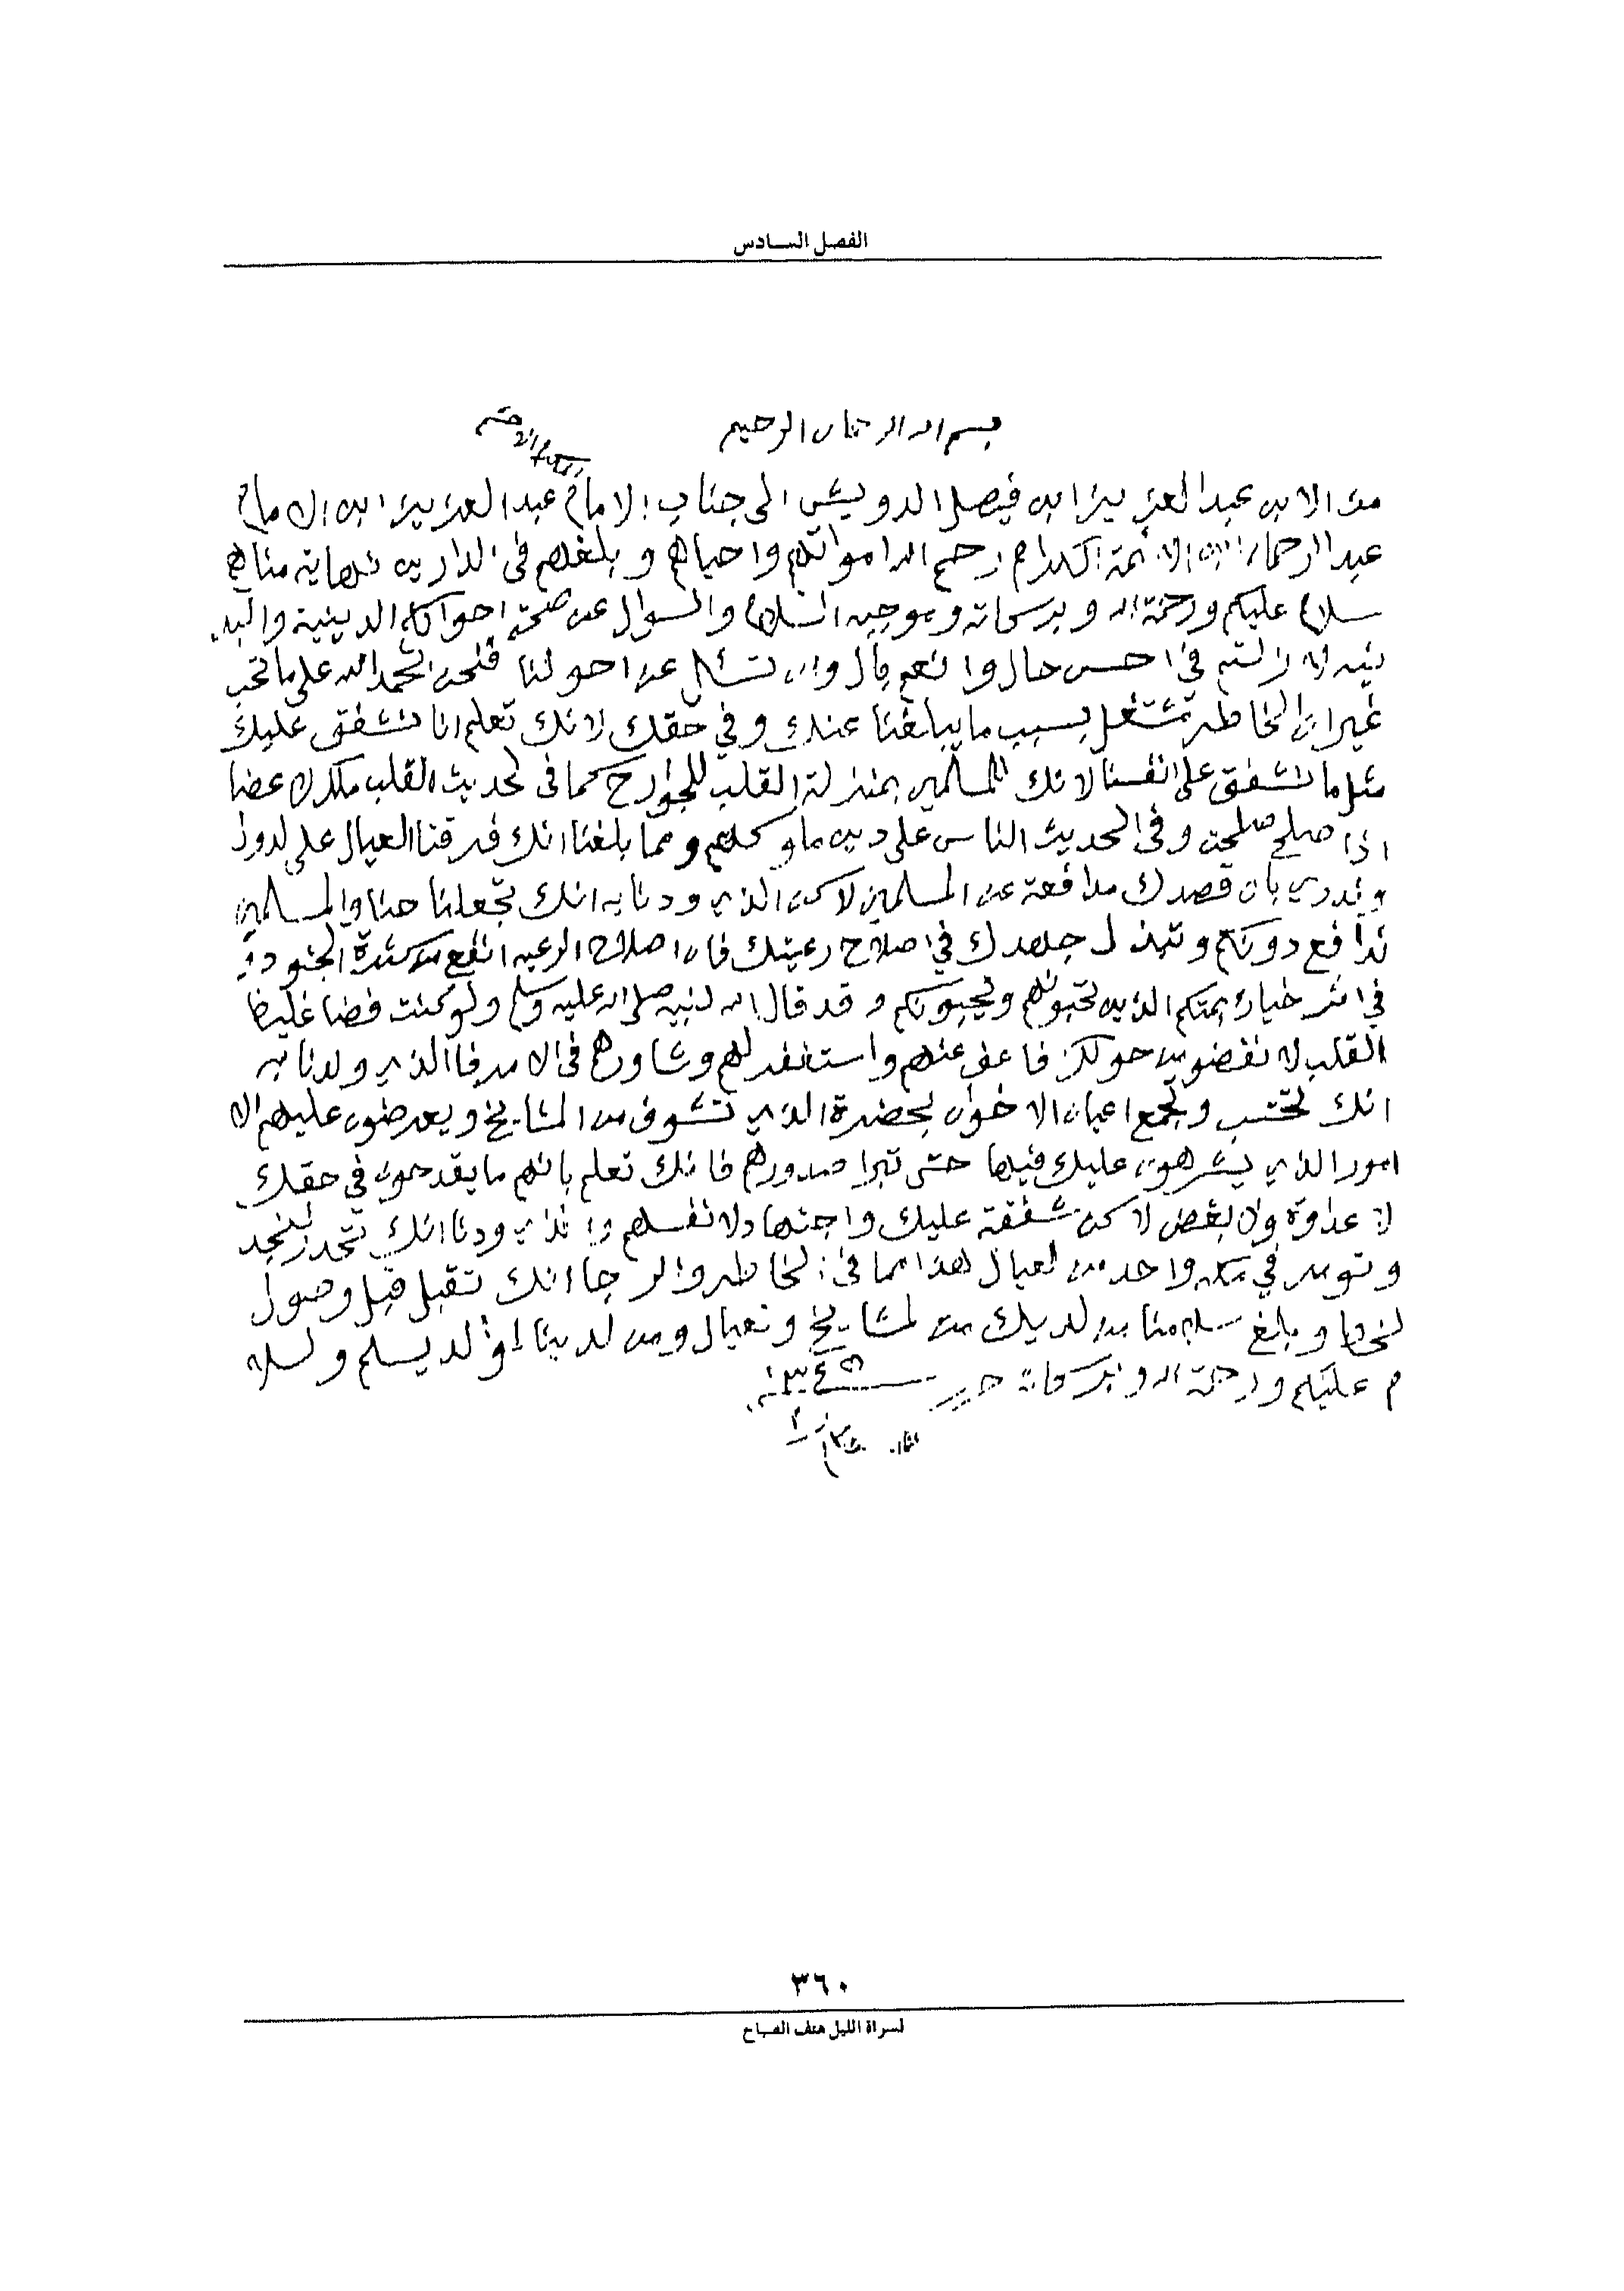 الفصل السادس
بسم الله الرحمان الرحيم
من الابن عبد العزيز ابن فيصل الدويش الى جناب الامام عبد العزيز ابن الامام
عبد الرحمان الائمة الكرام رحم الله امواتهم واحياهم وبلغهم في الدارين نهاية مناهم
سلام عليكم ورحمة الله وبركاته وموجبه السلام والسوال عن صحة احوالكم الدينية والبد
نيه لا زلتم في احسن حال وانعم بال وان تسئل عن احولنا فنحن نحمد الله على ما تحب
غير ان الخاطر تمشتغل بسبب ما يبلغنا عنك وفي حقك لانك تعلم انا نشفق عليك
مثل ما نشفق على انفسنا لانك للمسلمين بمنزلة القلب للجوارح كما في لحديث القلب ملك لاعضا
اذا صلح صلحت وفي الحديث الناس على دين ملوكهم ومما بلغنا انك فرقنا العيال على لدول
وندري بان قصدك مدافعة عن المسلمين لاكن الذي ودنا به انك تجعلنا حنا والمسلمين
ندافع دونكم وتبذل جهدك في اصلاح رعيتك فان اصلاح الرعيه انفع من كثرة الجنود و
في اثر خيار ئمتكم الذين تحبونهم ويحبونكم وقد قال الله لنبيه صلى الله عليه وسلم ولو كنت فضا غليظ
القلب لانفضو من حولك فاعف عنهم واستغفر لهم وشاورهم في الامر فاالذي ودنا به
انك تحتسب وتجمع اعيان الاخوان بحضرة الذي تشوف من المشايخ ويعرضون عليهم الا
امور الذي يشرهون عليك فيها حتى تبرا صدورهم فانك تعلم بانهم ما يقدحون في حقك
لا عداوة ولا بغض لاكن شفقة عليك واجتهاد لانفسهم والذي ودنا انك تحدر لنجد
وتومر في مكه واحد من لعيال هذا مما في الخاطر والرجا انك تقبل قبل وصول
لخط وبلغ سلامنا من لديك من لمشايخ ولعيال ومن لدينا الولد يسلم ولسلا
م عليكم ورحمة الله وبركاته حرر ١٣٤٥
٣٦٠
لسراة الليل هتف الصباح